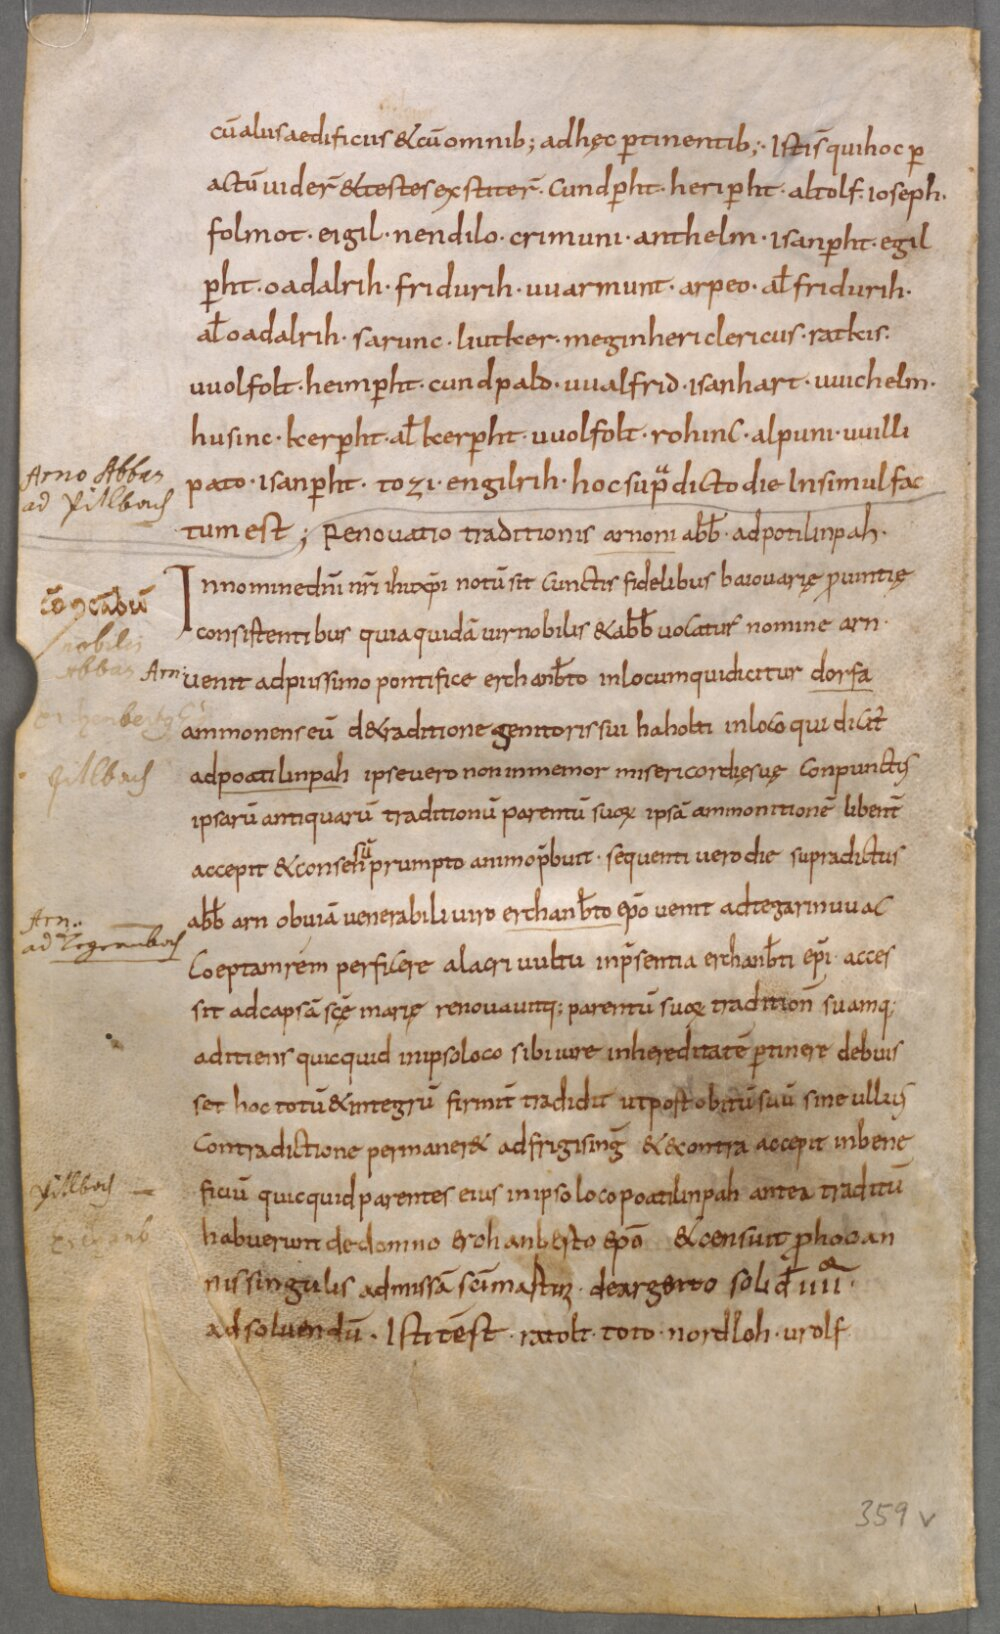 cū aliis aedificiis & cū omnib; ad hęc ꝑtinentib;· Isti s̄ qui hoc ꝑ
actū uider̄ & testes exstiter̄· Cundꝑht· heriꝑht· altolf· ioseph·
folmot· eigil· nendilo· crimuni· anthelm· isanꝑht· egil
ꝑht· oadalrih· fridurih· uuarmunt· arpeo· al̄ fridurih·
al̄ oadalrih· sarunc· liutker· meginheri clericus· ratkis·
uuolfolt· heimꝑht· cundpald· uualfrid· isanhart· uuichelm·
husinc· kerꝑht· al̄ kerꝑht· uuolfolt· rohinc· alpuni· uuilli
pato· isanꝑht· tozi· engilrih· hoc sup̄dicto die Insimul fac
tum est; Renouatio traditionis arnoni abb̄· ad potilinpah·
Arno Abbas
ad Pillbach
In nomine dn̄i nr̄i ih̄u xp̄i notū sit Cunctis fidelibus baiouarię ꝓuintię
consistentibus quia quidā uir nobilis & abb̄ uocatur nomine arn·
uenit ad piissimo pontifice erchanb̄to in locum qui dicitur dorfa
ammonens eū de traditione genitoris sui haholti in loco qui dicit̄
ad poatilinpah ipse uero non inmemor misericordię suę Conpunctis
ipsarū antiquarū traditionū parentū suoꝝ ipsā ammonitionē libent̄
accepit & consensū prumpto animo p̄buit· sequenti uero die supradictus
abb̄ arn obuiā uenerabili uiro erchanb̄to ep̄o uenit ad tegarinuuac
Coeptam rem perficere alacri uultu in p̄sentia erchanb̄ti ep̄i· acces
sit ad capsā sc̄ę marię renouauitq; parentū suoꝝ tradition̄ suamq;
aditiens quicquid in ipso loco sibi iure in hereditatē ꝑtinere debuis
set hoc totū & integrū firmit̄ tradidit ut post obitū suū sine ullius
Contradictione permaner& ad frigising̃ & econtra accepit in bene
ficiū quicquid parentes eius in ipso loco poatilinpah antea traditū
habuerunt de domno erchanberto ep̄o & censuit ꝓ hoc an
nis singulis ad missā sc̄i martiñ· de argento solid̄ iiii·
ad soluendū· Isti test̄· ratolt· toto· nordloh· urolf
nobilis
Abbas Arn:
Pillbach
Arn..
ad Tegernbach
Pillbach —
359 v